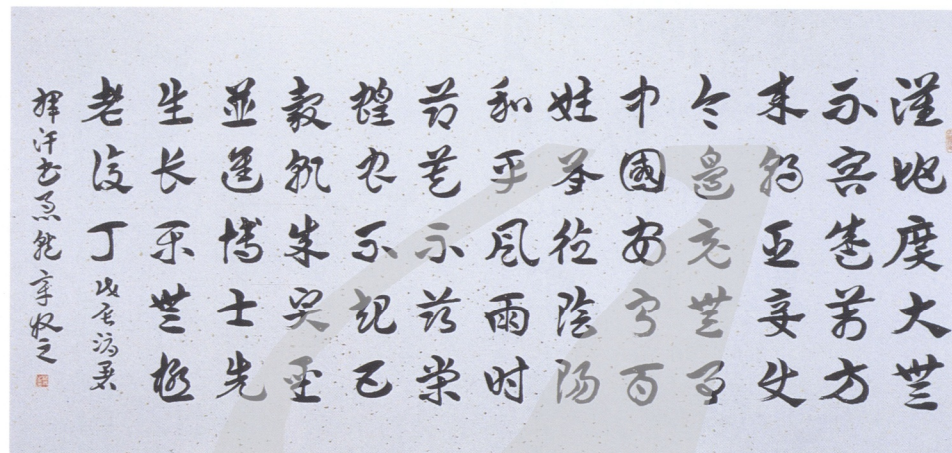 漢地廣大無
不容盛萬方
來朝臣妾使
令邊竟無事
中國安寧百
姓承德陰陽
和平風雨時
節莫不滋榮
蝗不起五
穀孰成賢聖
並進博士先
生長樂無極
老復丁 戊辰暑
揮汗書急就章